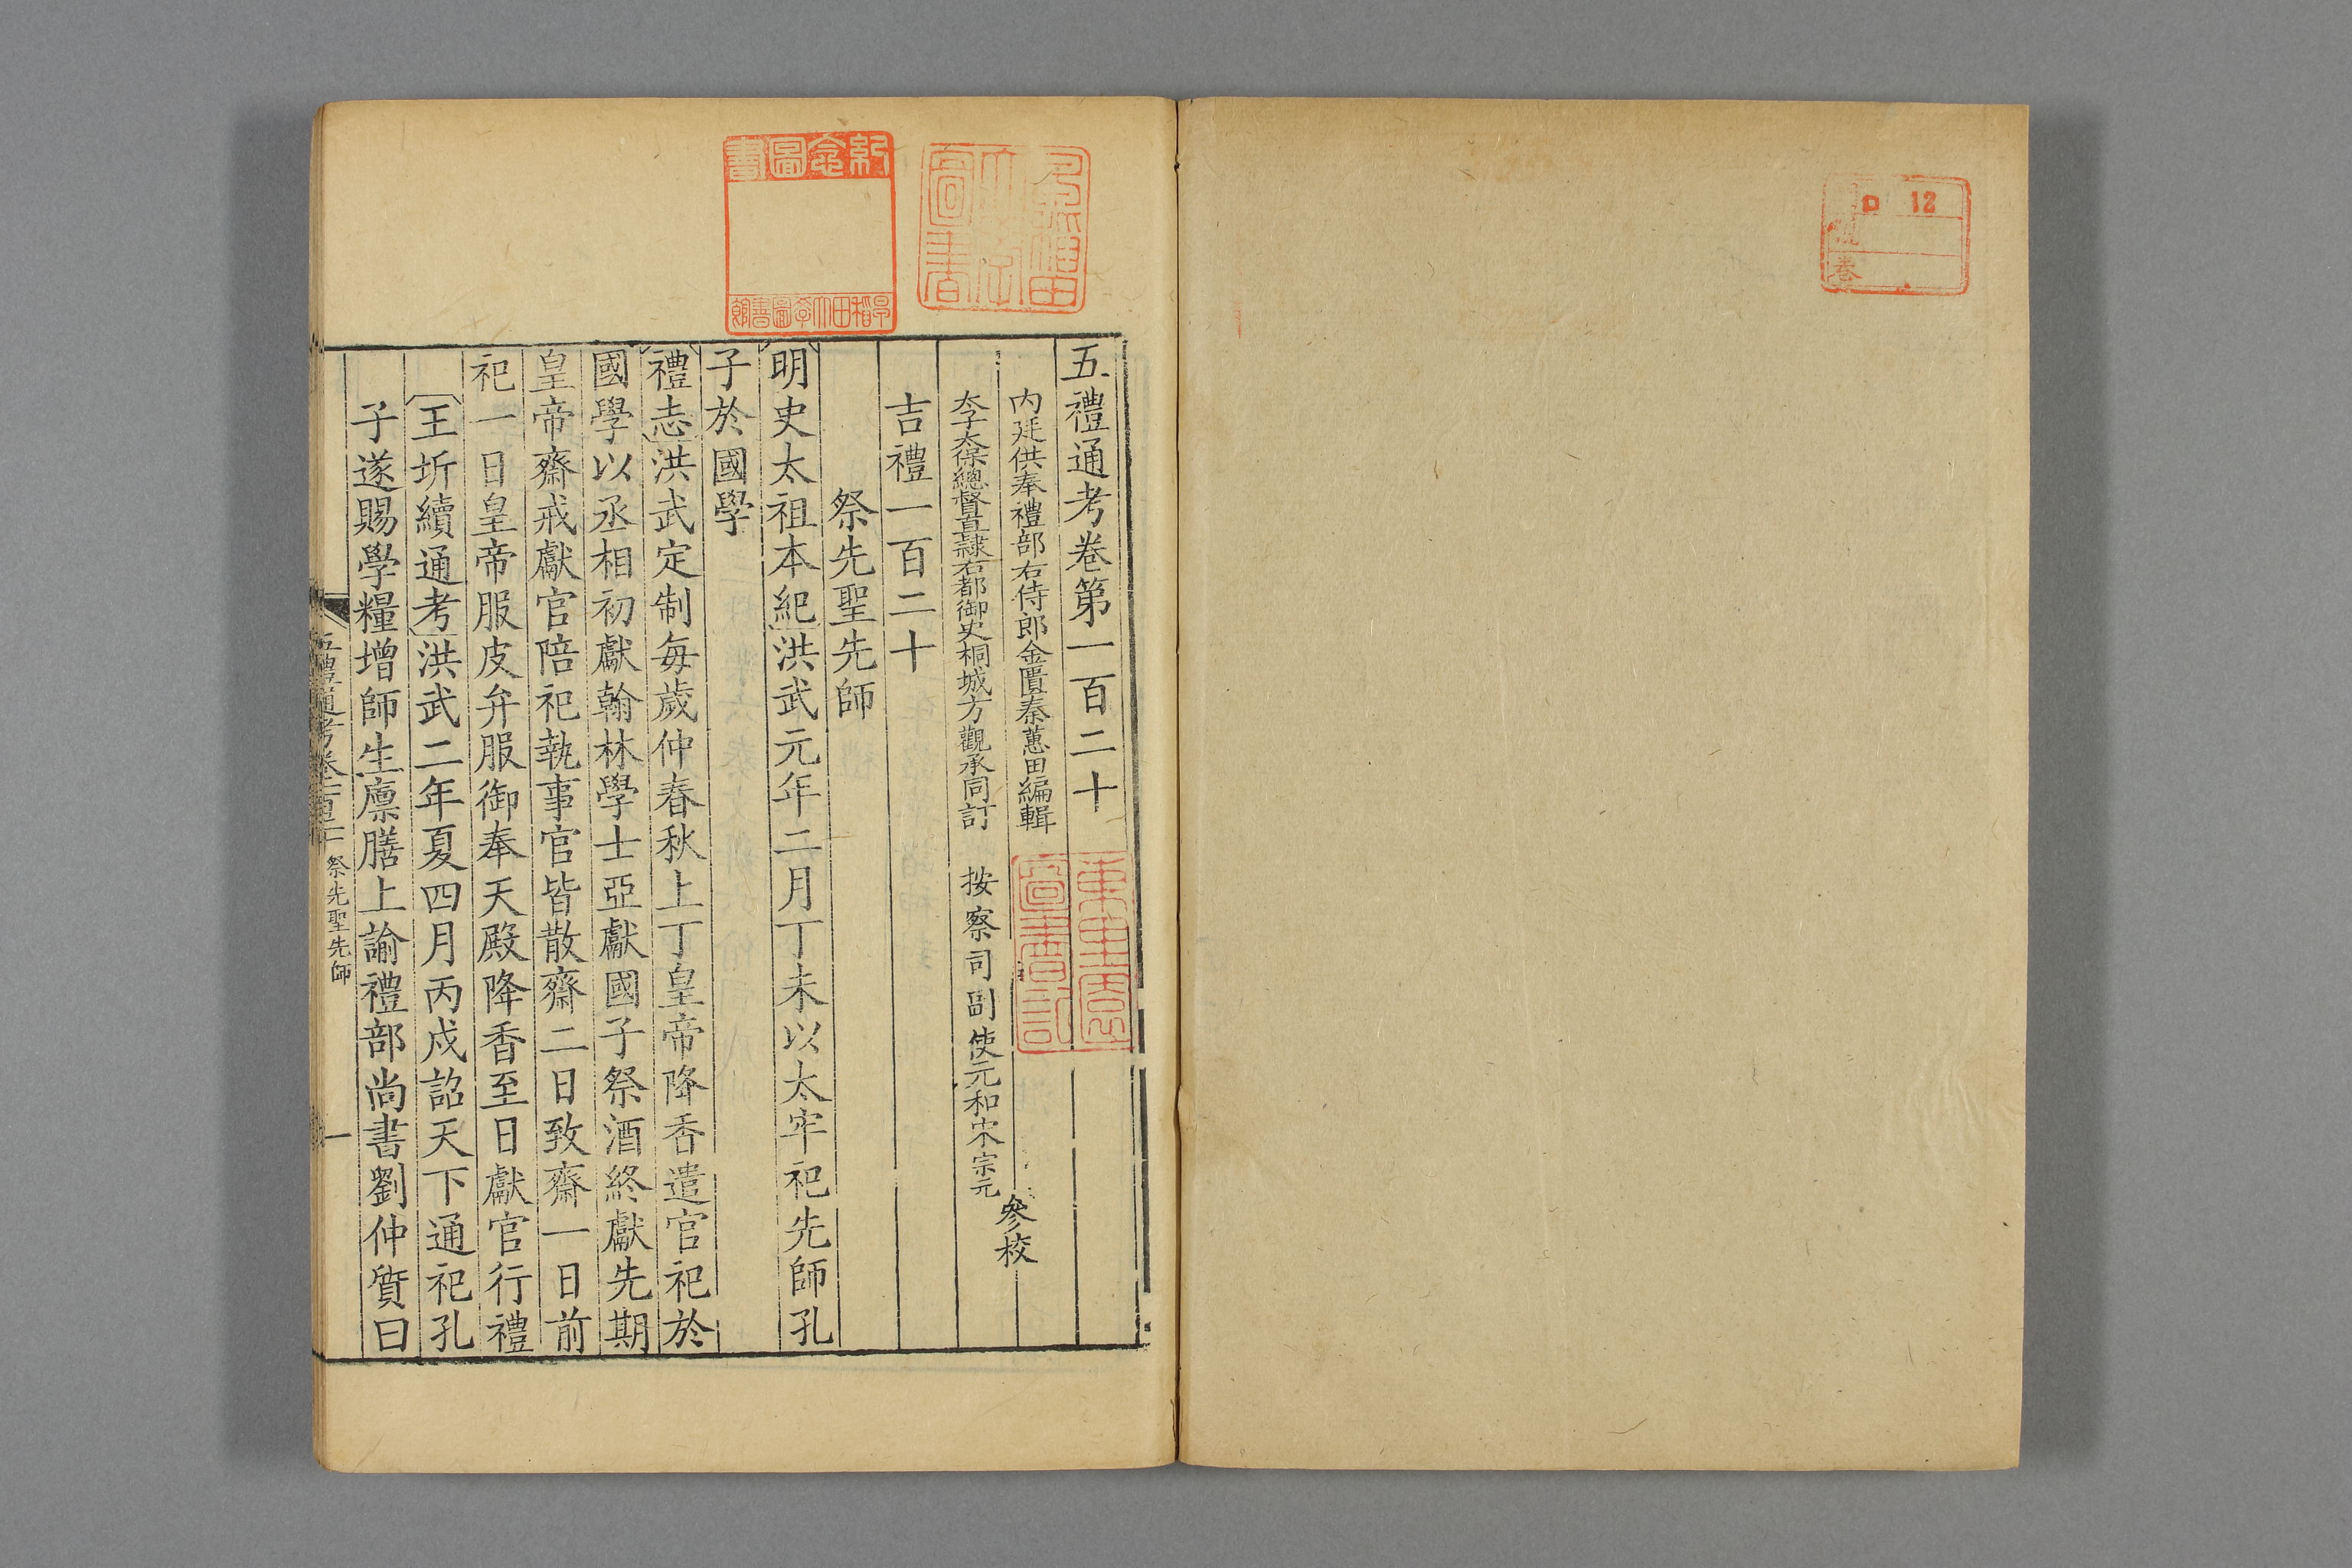 五禮通考卷第一百二十
內廷供奉禮部右侍郎金匱秦蕙田編輯
太子太保總督直隸右都御史桐城方觀承同訂
按察司副使元和宋宗元
參校
吉禮一百二十
祭先聖先師
明史太祖本紀洪武元年二月丁未以太牢祀先師孔
子於國學
禮志洪武定制每歲仲春秋上丁皇帝降香遣官祀於
國學以丞相初獻翰林學士亞獻國子祭酒終獻先期
皇帝齋戒獻官陪祀執事官皆散齋二日致齋一日前
祀一日皇帝服皮弁服御奉天殿降香至日獻官行禮
王圻續通考洪武二年夏四月丙戍詔天下通祀孔
子遂賜學糧增師生廩膳上諭禮部尚書劉仲質曰
五禮通考卷一百二十 祭先聖先師 一
紀念圖書
早稻田大學圖書館
早稻田大學圖書
圖書記
12
號
卷